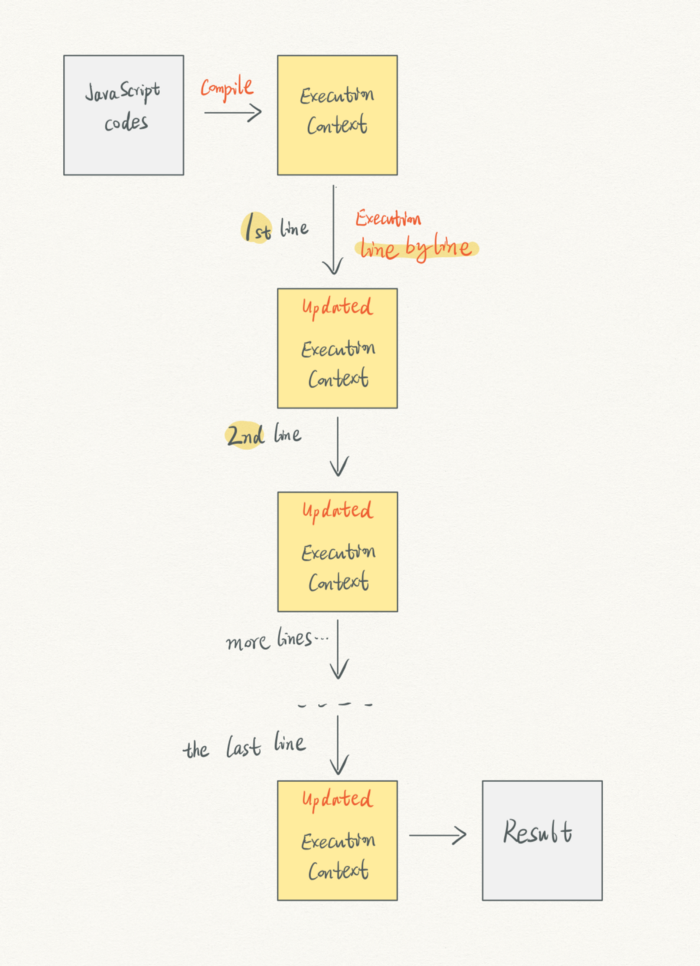 JavaScript
codes
Compile
Execution
Context
1st line
Execution
line by line
Updated
Execution
Context
2nd line
Updated
Execution
Context
more lines...
the last line
Updated
Execution
Context
Result